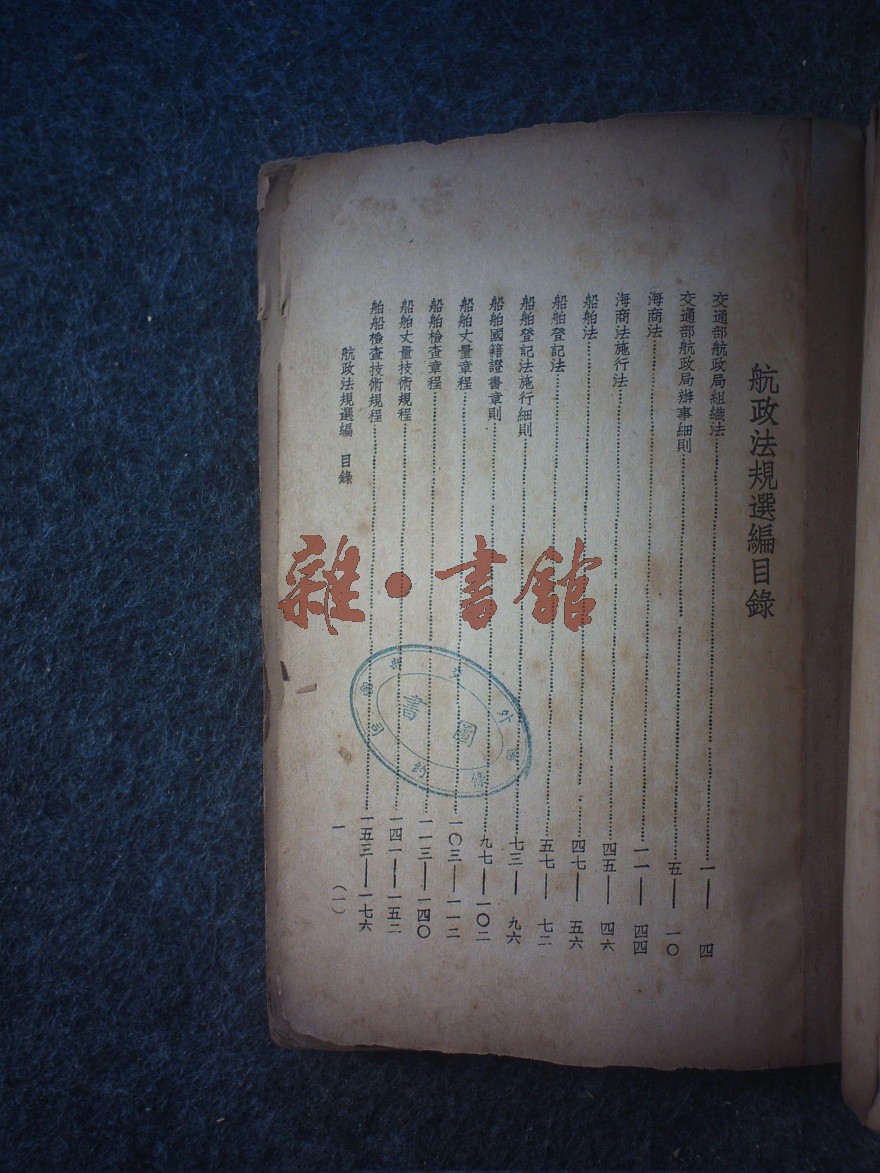 航政法規選編目錄
交通部航政局組織法……一—四
交通部航政局辦事細則……五—一〇
海商法……一一—四四
海商法施行法……四五—四六
船舶法……四七—五六
船舶登記法……五七—七二
船舶登記法施行細則……七三—九六
船舶國籍證書章則……九七—一〇二
船舶丈量章程……一〇三—一一二
船舶檢查章程……一一三—一四〇
船舶丈量技術規程……一四一—一五二
舶船檢查技術規程……一五三—一七六
航政法規選編 目錄
一 (一)
雜·書館
外交部
條約司
圖書